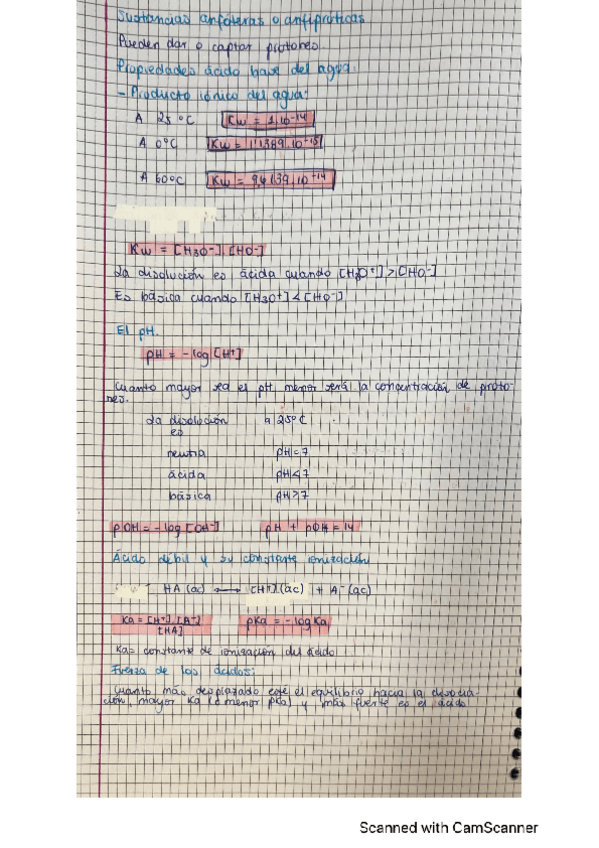 Sustancias anfóteras o anfipróticas
Pueden dar o captar protones.
Propiedades ácido base del agua.
- Producto iónico del agua:
A 25 ºC Kw = 1.10⁻¹⁴
A 0ºC Kw = 1'1389.10⁻¹⁵
A 60ºC Kw = 9,6139.10⁻¹⁴
Kw = [H3O⁻].[HO⁻]
La disolución es ácida cuando [H3O⁺] > [HO⁻]
Es básica cuando [H3O⁺] < [HO⁻]
El pH.
pH = - log [H⁺]
Cuanto mayor sea el pH menor será la concentración de proto-
nes.
La disolución a 25ºC
es
neutra pH = 7
ácida pH < 7
básica pH > 7
pOH = - log [OH⁻] pH + pOH = 14
Ácido débil y su constante ionización
HA (ac) ⟷ [H⁺] (ac) + A⁻ (ac)
Ka = [H⁺].[A⁻] pKa = - log Ka
[HA]
Ka = constante de ionización del ácido
Fuerza de los ácidos:
Cuanto más desplazado esté el equilibrio hacia la disocia-
ción, mayor Ka (o menor pKa) y más fuerte es el ácido
Scanned with CamScanner